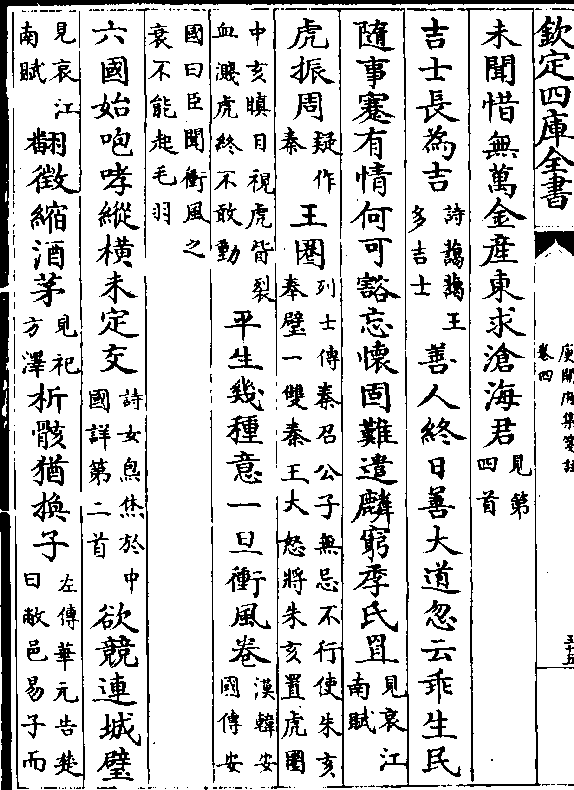 欽定四庫全書
庾開府集箋註
卷四
五十五
未聞惜無萬金產東求滄海君見第四首
吉士長為吉詩藹藹王多吉士善人終日善大道忽云乖生民
隨事蹇有情何可豁忘懷固難遣麟窮季氏罝見哀江南賦
虎振周疑作秦王圈列士傳秦召公子無忌不行使朱亥奉璧一雙秦王大怒將朱亥置虎圈
中亥瞋目視虎眥裂血濺虎終不敢動平生幾種意一旦衝風卷漢韓安國傳安
國曰臣聞衝風之衰不能起毛羽
六國始咆哮縱橫未定交詩女炰烋於中國詳第二首欲競連城璧
見哀江南賦翻徵縮酒茅見祀方澤析骸猶換子左傳華元告楚曰敝邑易子而